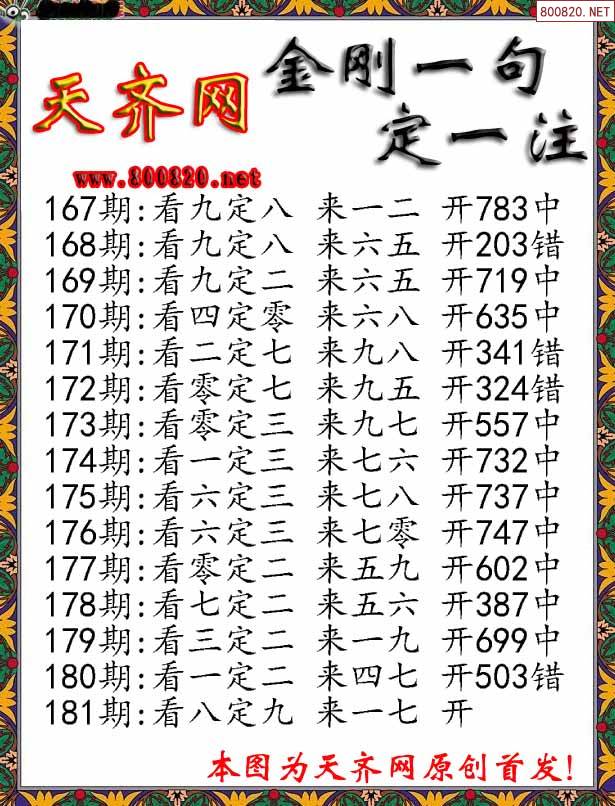 800820.NET
天齐网
金刚一句
定一注
www.800820.net
167期:看九定八 来一二 开783中
168期:看九定八 来六五 开203错
169期:看九定二 来六五 开719中
170期:看四定零 来六八 开635中
171期:看二定七 来九八 开341错
172期:看零定七 来九五 开324错
173期:看零定三 来九七 开557中
174期:看一定三 来七六 开732中
175期:看六定三 来七八 开737中
176期:看六定三 来七零 开747中
177期:看零定二 来五九 开602中
178期:看七定二 来五六 开387中
179期:看三定二 来一九 开699中
180期:看一定二 来四七 开503错
181期:看八定九 来一七 开
本图为天齐网原创首发!